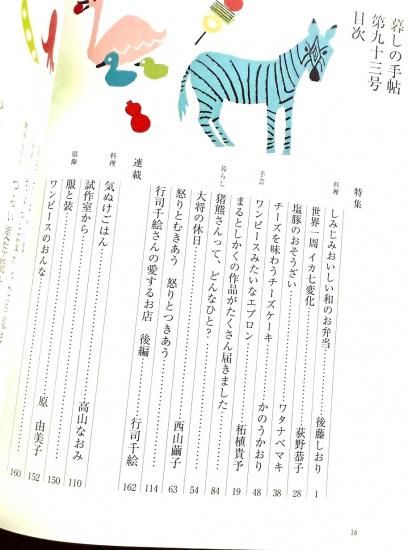 暮しの手帖
第九十三号
目次
特集
料理
しみじみおいしい和のお弁当 後藤しおり 1
世界一周 イカ七変化 荻野恭子 28
塩豚のおそうざい ワタナベマキ 38
チーズを味わうチーズケーキ かのうかおり 48
手芸
ワンピースみたいなエプロン 柘植貴予 19
まるとしかくの作品がたくさん届きました 84
暮らし
猪熊さんって、どんなひと? 54
大将の休日 西山繭子 63
怒りとむきあう 怒りとつきあう 114
行司千絵さんの愛するお店 後編 行司千絵 162
連載
料理
気ぬけごはん 高山なおみ 110
服飾
試作室から 150
服と装 原 由美子 152
ワンピースのおんな 160
16